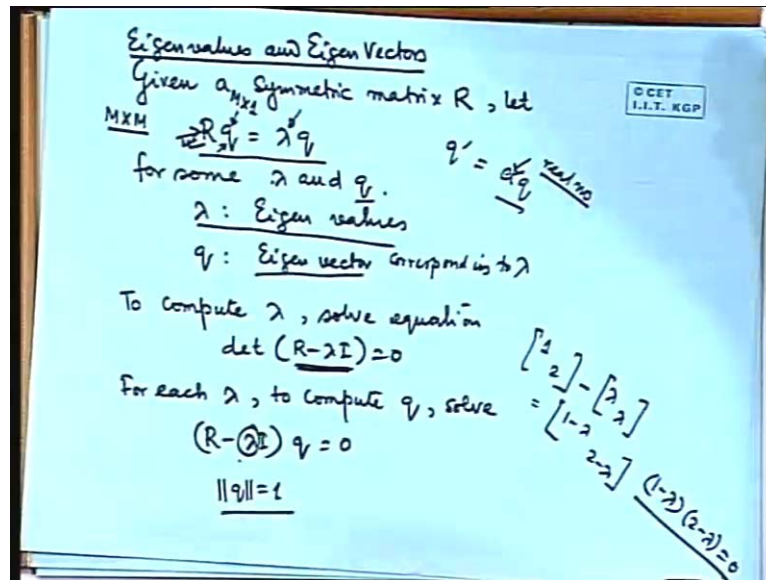 Eigenvalues and Eigen Vectors
Given a symmetric matrix R, let
M×1
M×M
Rq = λq
q' = αq real no
for some λ and q.
λ : Eigen values
q : Eigen vector corresponding to λ
To compute λ, solve equation
det (R-λI)=0
For each λ, to compute q, solve
(R-λI) q = 0
||q||=1
[1 2] - [λ λ]
= [1-λ 2-λ] (1-λ)(2-λ)=0
© CET
I.I.T. KGP